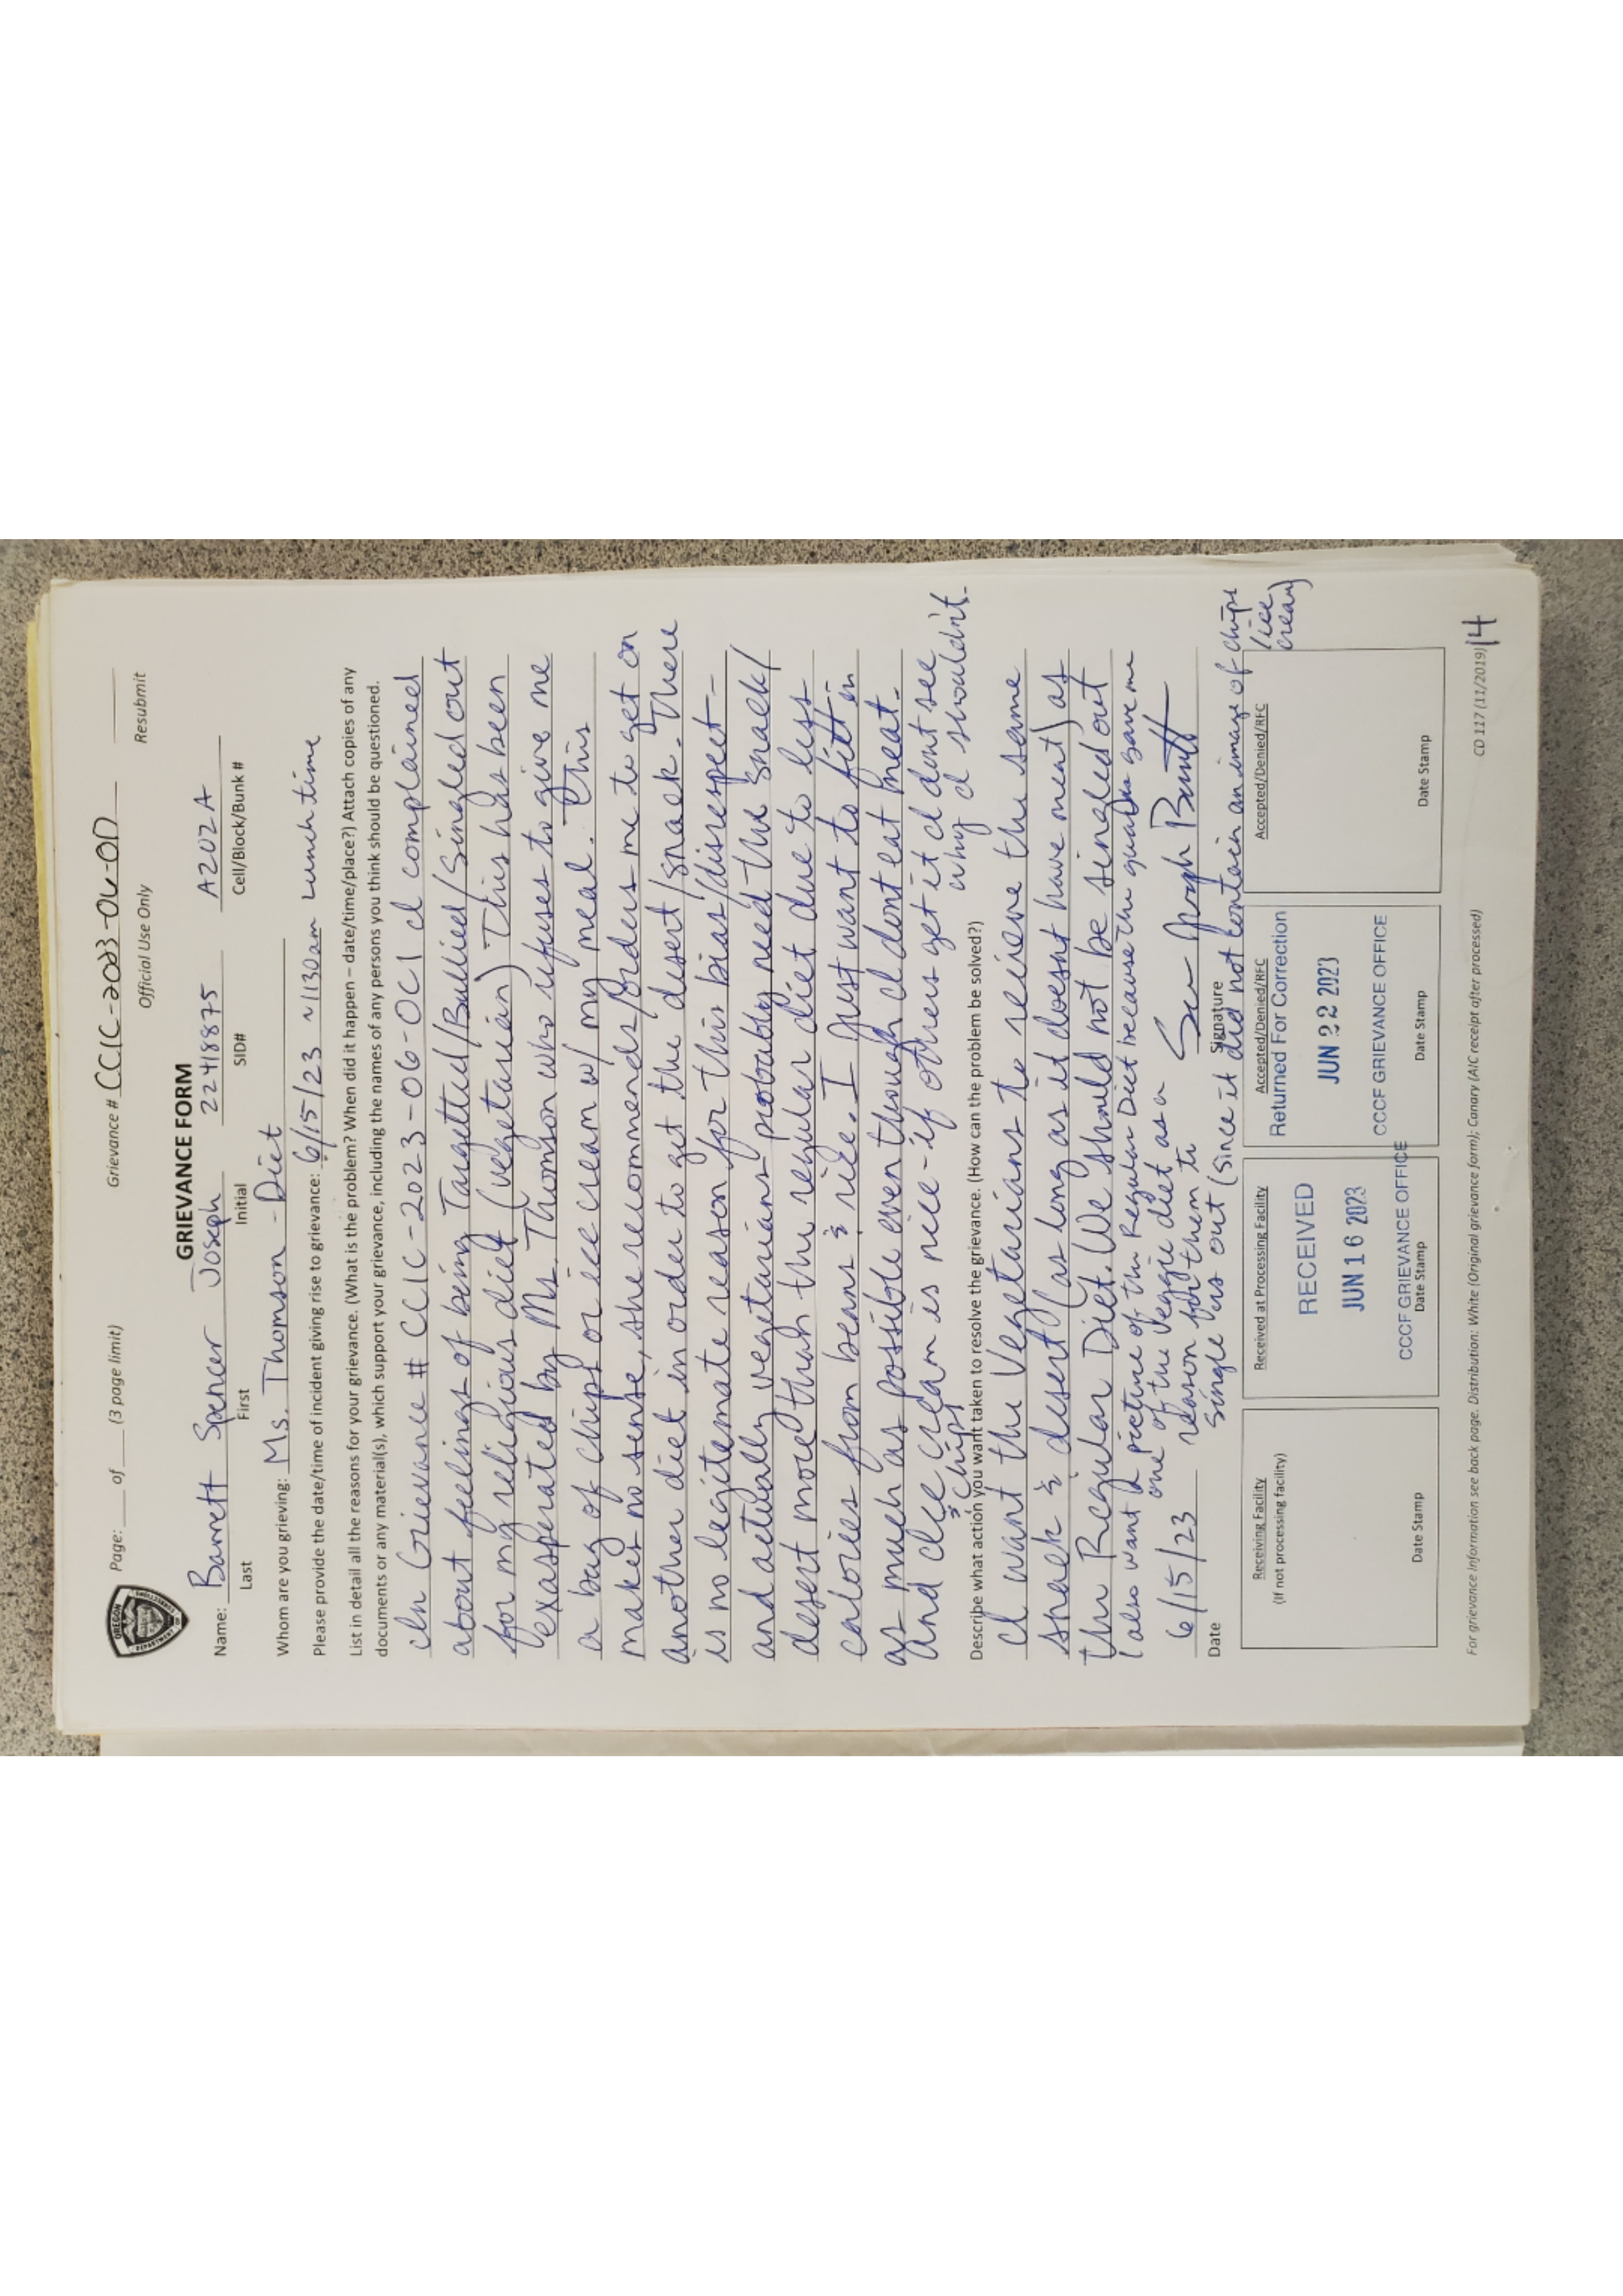 OREGON
DEPARTMENT
CORRECTIONS
Page: ____ of ____ (3 page limit)
Grievance # CCIC-2023-06-OD
Official Use Only
Resubmit
GRIEVANCE FORM
Name: Barrett Spencer Joseph 22418875 A202A
Last First Initial SID# Cell/Block/Bunk #
Whom are you grieving: Ms. Thomson - Diet
Please provide the date/time of incident giving rise to grievance: 6/15/23 ~1130am Lunch time
List in detail all the reasons for your grievance. (What is the problem? When did it happen – date/time/place?) Attach copies of any
documents or any material(s), which support your grievance, including the names of any persons you think should be questioned.
In Grievance # CCIC-2023-06-OCI I complained
about feelings of being Targetted/Bullied/Singled out
for my religious diet (vegetarian) This has been
exasperated by Ms. Thomson who refuses to give me
a bag of chips or ice cream w/ my meal. This
makes no sense, she recommends/orders me to get on
another diet in order to get the desert/snack. There
is no legitemate reason for this bias/disrespect-
and actually vegetarians probably need the snack/
desert more than the regular diet due to less
calories from beans & rice. I just want to fitt in
as much as possible even though I dont eat meat.
And ice cream is nice-if others get it I dont see
& chips
why I shouldn't.
Describe what action you want taken to resolve the grievance. (How can the problem be solved?)
I want the Vegetarians to recieve the same
snack & desert (as long as it doesnt have meat) as
the Regular Diet. We should not be singled out
(also want a picture of the Regular Diet because the guards gave me
one of the Veggie diet as a
reason for them to
single us out (since it did not contain an image of chips
/ice
cream)
6/15/23
Date
Signature
Receiving Facility
(If not processing facility)
Date Stamp
Received at Processing Facility
RECEIVED
JUN 16 2023
CCCF GRIEVANCE OFFICE
Date Stamp
Accepted/Denied/RFC
Returned For Correction
JUN 22 2023
CCCF GRIEVANCE OFFICE
Date Stamp
Accepted/Denied/RFC
Date Stamp
For grievance Information see back page. Distribution: White (Original grievance form); Canary (AIC receipt after processed)
CD 117 (11/2019)
14